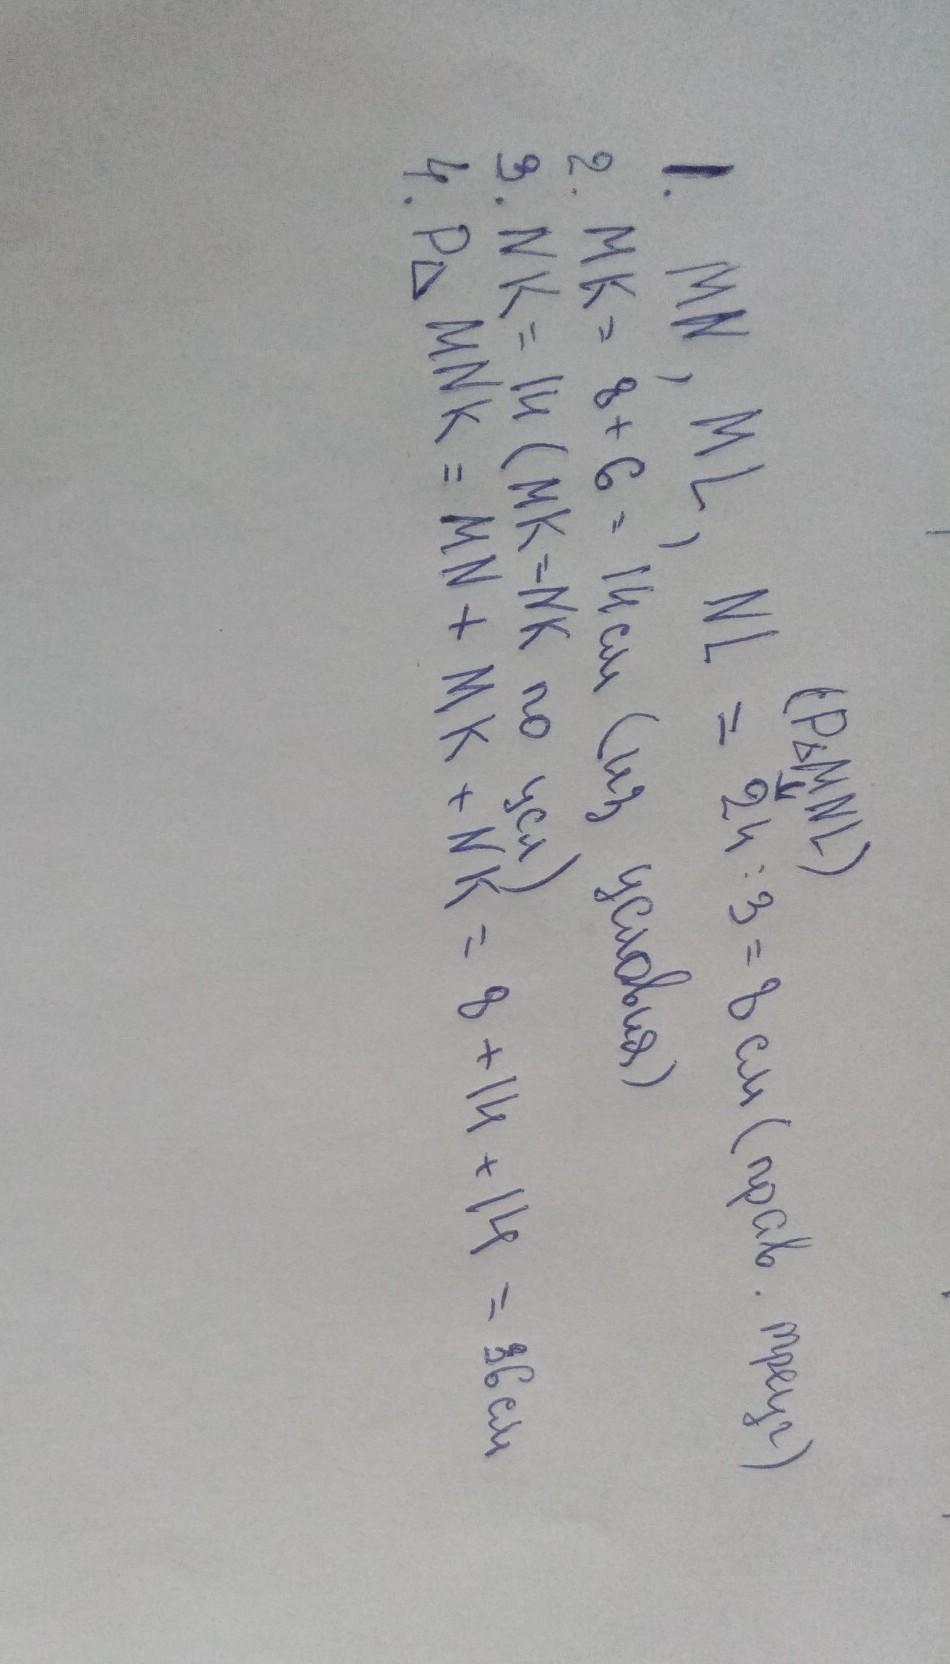 (P△MNL)
1. MN, ML, NL = 24 : 3 = 8 см (прав. треуг)
2. MK = 8 + 6 = 14 см (из условия)
3. NK = 14 (MK = NK по усл)
4. P△ MNK = MN + MK + NK = 8 + 14 + 14 = 36 см